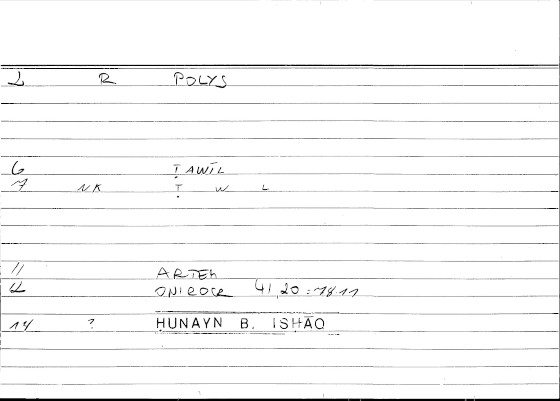 1 R POLYS
6 ṬAWĪL
7 NK Ṭ W L
11 ARTEM
12 ONIROCR 41,20 = 78.11
14 ? ḤUNAYN B. ISḤĀQ